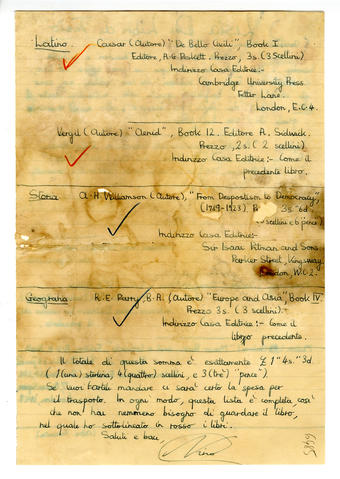 Latino. Caesar (Autore) "De Bello Civili", Book I
Editore, A.G. Peskett. Prezzo, 3s. (3 Scellini)
Indirizzo Casa Editrice:-
Cambridge University Press.
Fetter Lane.
London, E.C.4.
Vergil (Autore) "Aeneid", Book 12. Editore A. Sidwick.
Prezzo, 2s. (2 scellini).
Indirizzo Casa Editrice:- Come il
precedente libro.
Storia A.H. Williamson (Autore), "From Despostism to Democracy",
(1789-1923). 3s. 6d.
scellini e 6 pence)
Indirizzo Casa Editrice:-
Sir Isaac Pitman and Sons
Parker Street, Kingsway,
London, W.C.2.
Geografia R.E. Parry, B.A. (Autore) "Europe and Asia", Book IV
Prezzo 3s. (3 scellini):-
Indirizzo Casa Editrice:- Come il
libro precedente.
Il totale di questa somma è esattamente £1" 4s." 3d.
(1 (una) sterlina, 4 (quattro) scellini, e 3 (tre) "pence").
Se vuoi farteli mandare ci sarà certo la spesa per
il trasporto. In ogni modo, questa lista è completa così
che non hai nemmeno bisogno di guardare il libro,
nel quale ho sottolineato in rosso i libri.
Saluti e baci,
6485